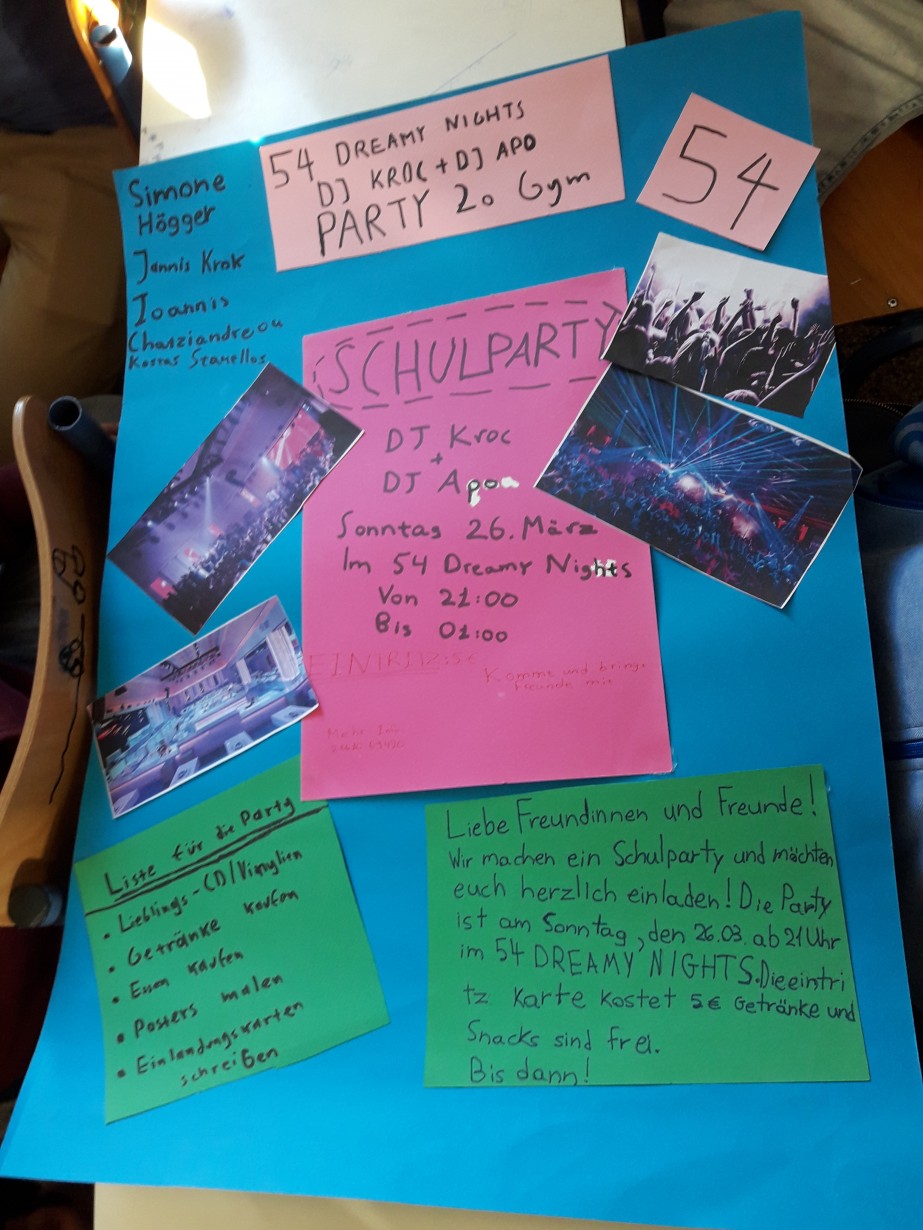 54 DREAMY NIGHTS
DJ KROC + DJ APO
PARTY 2o Gym
54
Simone
Högger
Jannis Krok
Ioannis
Chatziandreou
Kostas Stamellos
SCHULPARTY
DJ Kroc
+
DJ Apo
Sonntag 26. März
Im 54 Dreamy Nights
Von 21:00
Bis 01:00
EINTRITZ: 5€
Komme und bringe
freunde mit
Mehr
Liste für die Party
• Lieblings-CD/Vinylien
• Getränke kaufen
• Essn kaufen
• Posters malen
• Einlandungskarten
schreiben
Liebe Freundinnen und Freunde!
Wir machen ein Schulparty und möchten
euch herzlich einladen! Die Party
ist am Sonntag, den 26.03. ab 21 Uhr
im 54 DREAMY NIGHTS. Die eintri
tz Karte kostet 5€ Getränke und
Snacks sind frei.
Bis dann!